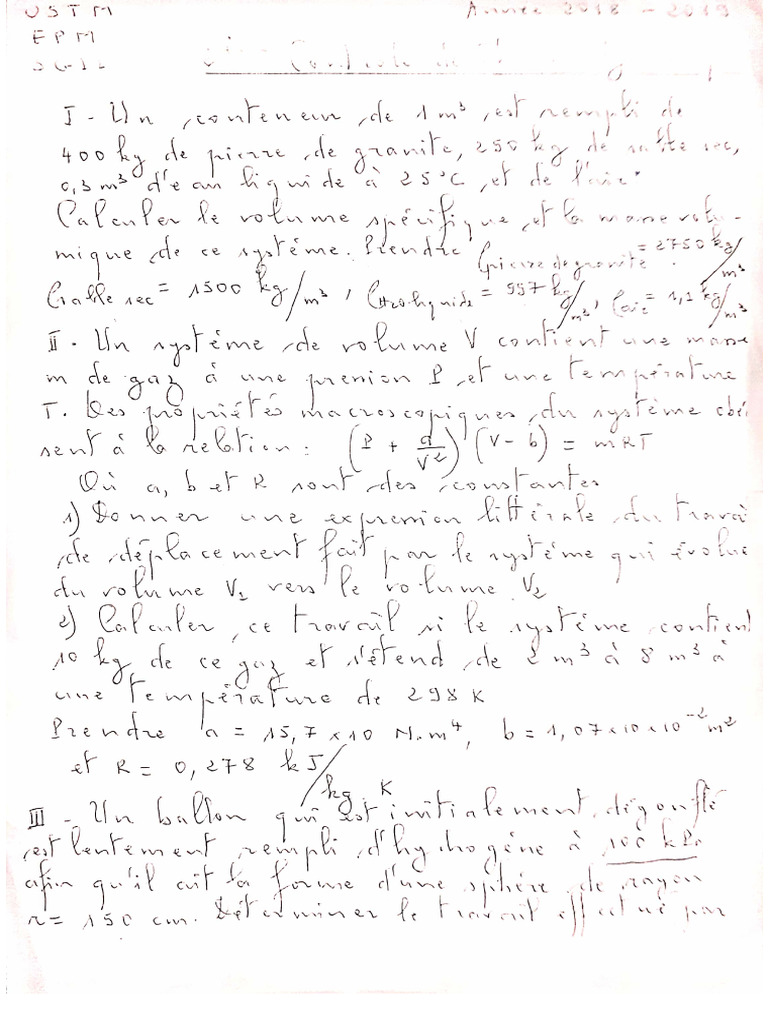 USTM Année 2018 - 2019
EPM
Contrôle de
I - Un conteneur de 1 m³ est rempli de
400 kg de pierre de granite, 250 kg de sable sec,
0,3 m³ d'eau liquide à 25°C et de l'air.
Calculer le volume spécifique et la masse volu-
mique de ce système. Prendre ρpierre de granite = 2750 kg/m³
ρsable sec = 1500 kg/m³, ρH2O liquide = 997 kg/m³, ρair = 1,1 kg/m³
II - Un système de volume V contient une masse
m de gaz à une pression P et une température
T. Les propriétés macroscopiques du système obéi
sent à la relation : (P + a/V²)(V - b) = mRT
Où a, b et R sont des constantes
1) Donner une expression littérale du travai
de déplacement fait par le système qui évolue
du volume V₁ vers le volume V₂
2) Calculer ce travail si le système contient
10 kg de ce gaz et s'étend de 2 m³ à 8 m³ à
une température de 298 K
Prendre a = 15,7×10 N.m⁴, b = 1,07×10×10⁻² m²
et R = 0,278 kJ/kg.K
III - Un ballon qui est initialement dégonflé
est lentement rempli d'hydrogène à 100 kPa
afin qu'il ait la forme d'une sphère de rayon
r = 150 cm. Déterminer le travail effectué par